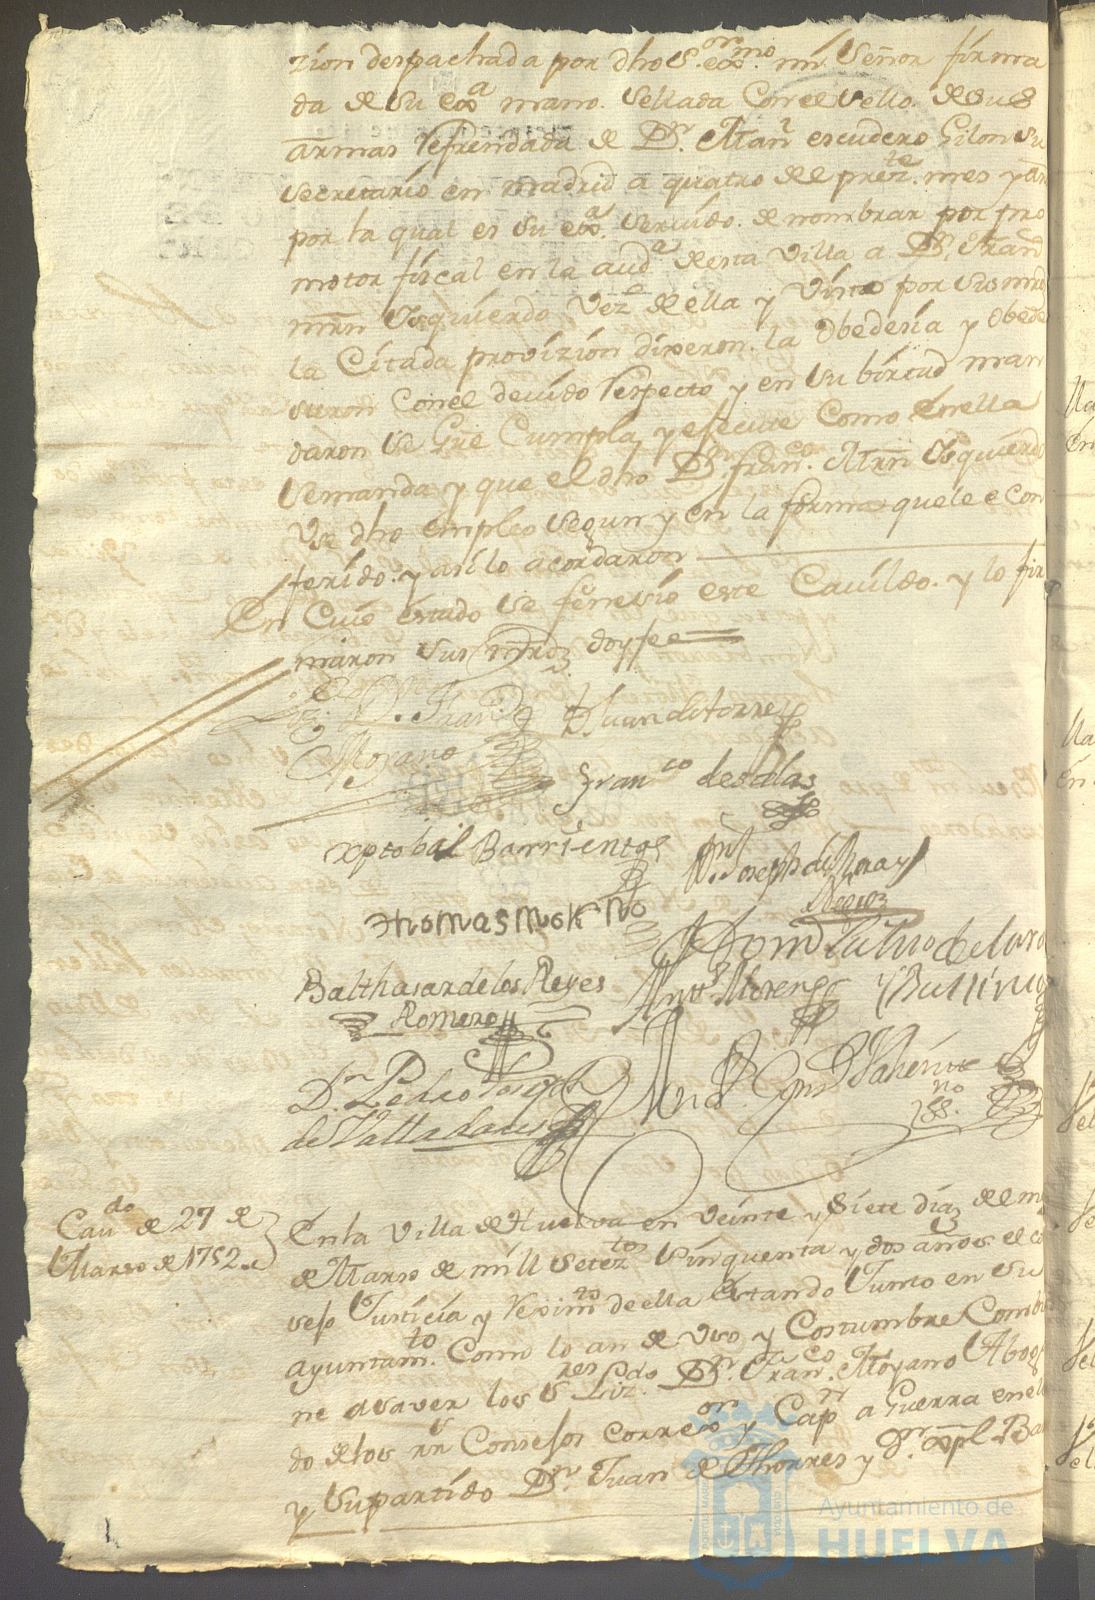 zion despachada por dho S.or exmo. mi Señor firma
da de su exa. mano. sellada Con el sello. de sus
armas Refrendada de Dn. Man.l escudero Gilon su
secretario en madrid a quatro del prez.te mes y añ
por la qual es su exa. servido. de nombrar por pro
motor fiscal en la auda. desta Villa a Dn. Fran
mrn Isquierdo Vez.o de ella y Vista por sus mrds
la Citada provizion dixeron. la Obedesia y Obede
sieron Con el devido Respecto y en su birtud man
daron se Gue Cumpla y executte Como en ella
semanda y que el dho Dn. fran.co Mrn Isquierdo
Use dho empleo segun y en la forma que le e con
ferido. y asi lo acordaron
En Cuio estado se feneesio este Cavildo. y lo fir
maron sus mrds doy fee
D. Fran
Moyano
Juan de torres
Fran.co de salas
xptobal Barrientos
Joseph de
thomas moreno
Balthasar de los Reyes
Romero
Anto. Moreno
Dn. Pedro Joseph
de Valladares
Cau.do de 27 de
Marso de 1752.
En la Villa de Huelva en veinte y siete dias del m
de Marso de mill setez.tos sinquenta y dos años el co
sejo Justicia y Rexim.to de ella estando Junto en su
ayuntam.to. Como lo an de Uso y Costumbre Combi
ne a saver los S.res Liz.do Dn. Fran.co Moyano Abog
do de los rrs Consejos corre.or y Cap.n a Guerra en ell
y su partido Dn. Juan de Thorres y Dn. xpl. Ba
Ayuntamiento de
HUELVA